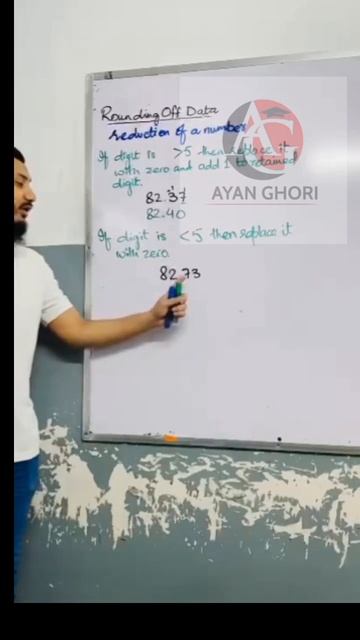 Rounding Off Data
reduction of a number
If digit is >5 then replace it
with zero and add 1 to retained
digit.
82.37
82.40
If digit is <5 then replace it
with zero.
82.73
AYAN GHORI